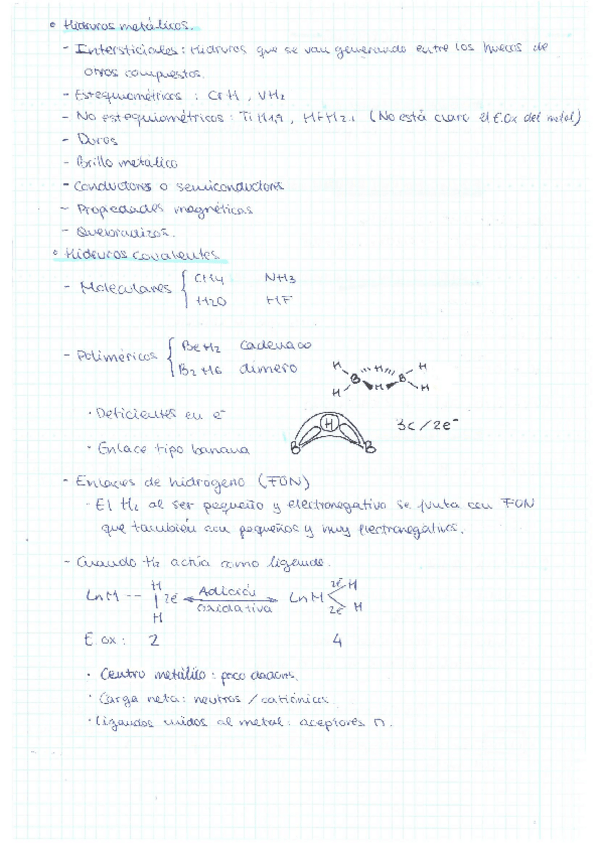 • Hidruros metálicos.
- Intersticiales: Hidruros que se van generando entre los huecos de
otros compuestos.
- Estequiométricos : CrH , VH2
- No estequiométricos : TiH1,9 , HfH2.1 (No está claro el E.Ox del metal)
- Duros
- Brillo metálico
- Conductores o semiconductores
- Propiedades magnéticas
- Quebradizos.
• Hidruros covalentes
- Moleculares { CH4 NH3
H2O HF
- Poliméricos { BeH2 Cadenaco
B2H6 dímero
H H H
B B
H H H
· Deficientes en e-
H 3c/2e-
· Enlace tipo banana B B
- Enlaces de hidrógeno (FON)
- El H2 al ser pequeño y electronegativo se junta con FON
que también son pequeños y muy electronegativos.
- Cuando H2 actúa como ligando.
H 2e- H
LnM -- | 2e- Adición oxidativa LnM
H 2e- H
E.ox : 2 4
· Centro metálico : poco dadores.
· Carga neta: neutros / catiónicos
· Ligandos unidos al metal: aceptores π.